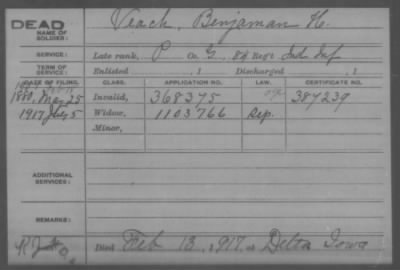 DEAD
NAME OF SOLDIER: Veach, Benjaman H.
SERVICE: Late rank, P Co. G, 84 Reg't Ind Inf
TERM OF SERVICE: Enlisted , 1 Discharged , 1
DATE OF FILING. CLASS. APPLICATION NO. LAW. CERTIFICATE NO.
1880, May 25 Invalid, 368375 387239
1917 July 5 Widow, 1103766 Rep.
Minor,
ADDITIONAL SERVICES:
REMARKS:
Died Feb 13, 1917, at Delta Iowa